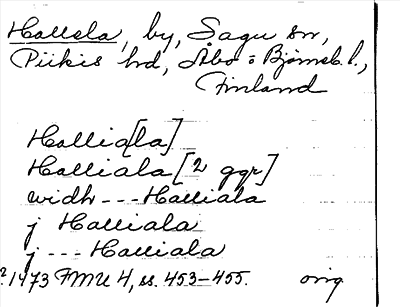 Hallela, by, Sagu sn,
Piikis hd, Åbo o Björneb. l.,
Finland
Hallia[la]
Halliala [2 ggr]
widh --- Halliala
j Halliala
j --- Halliala
?1473 FMU 4, ss. 453-455. orig.